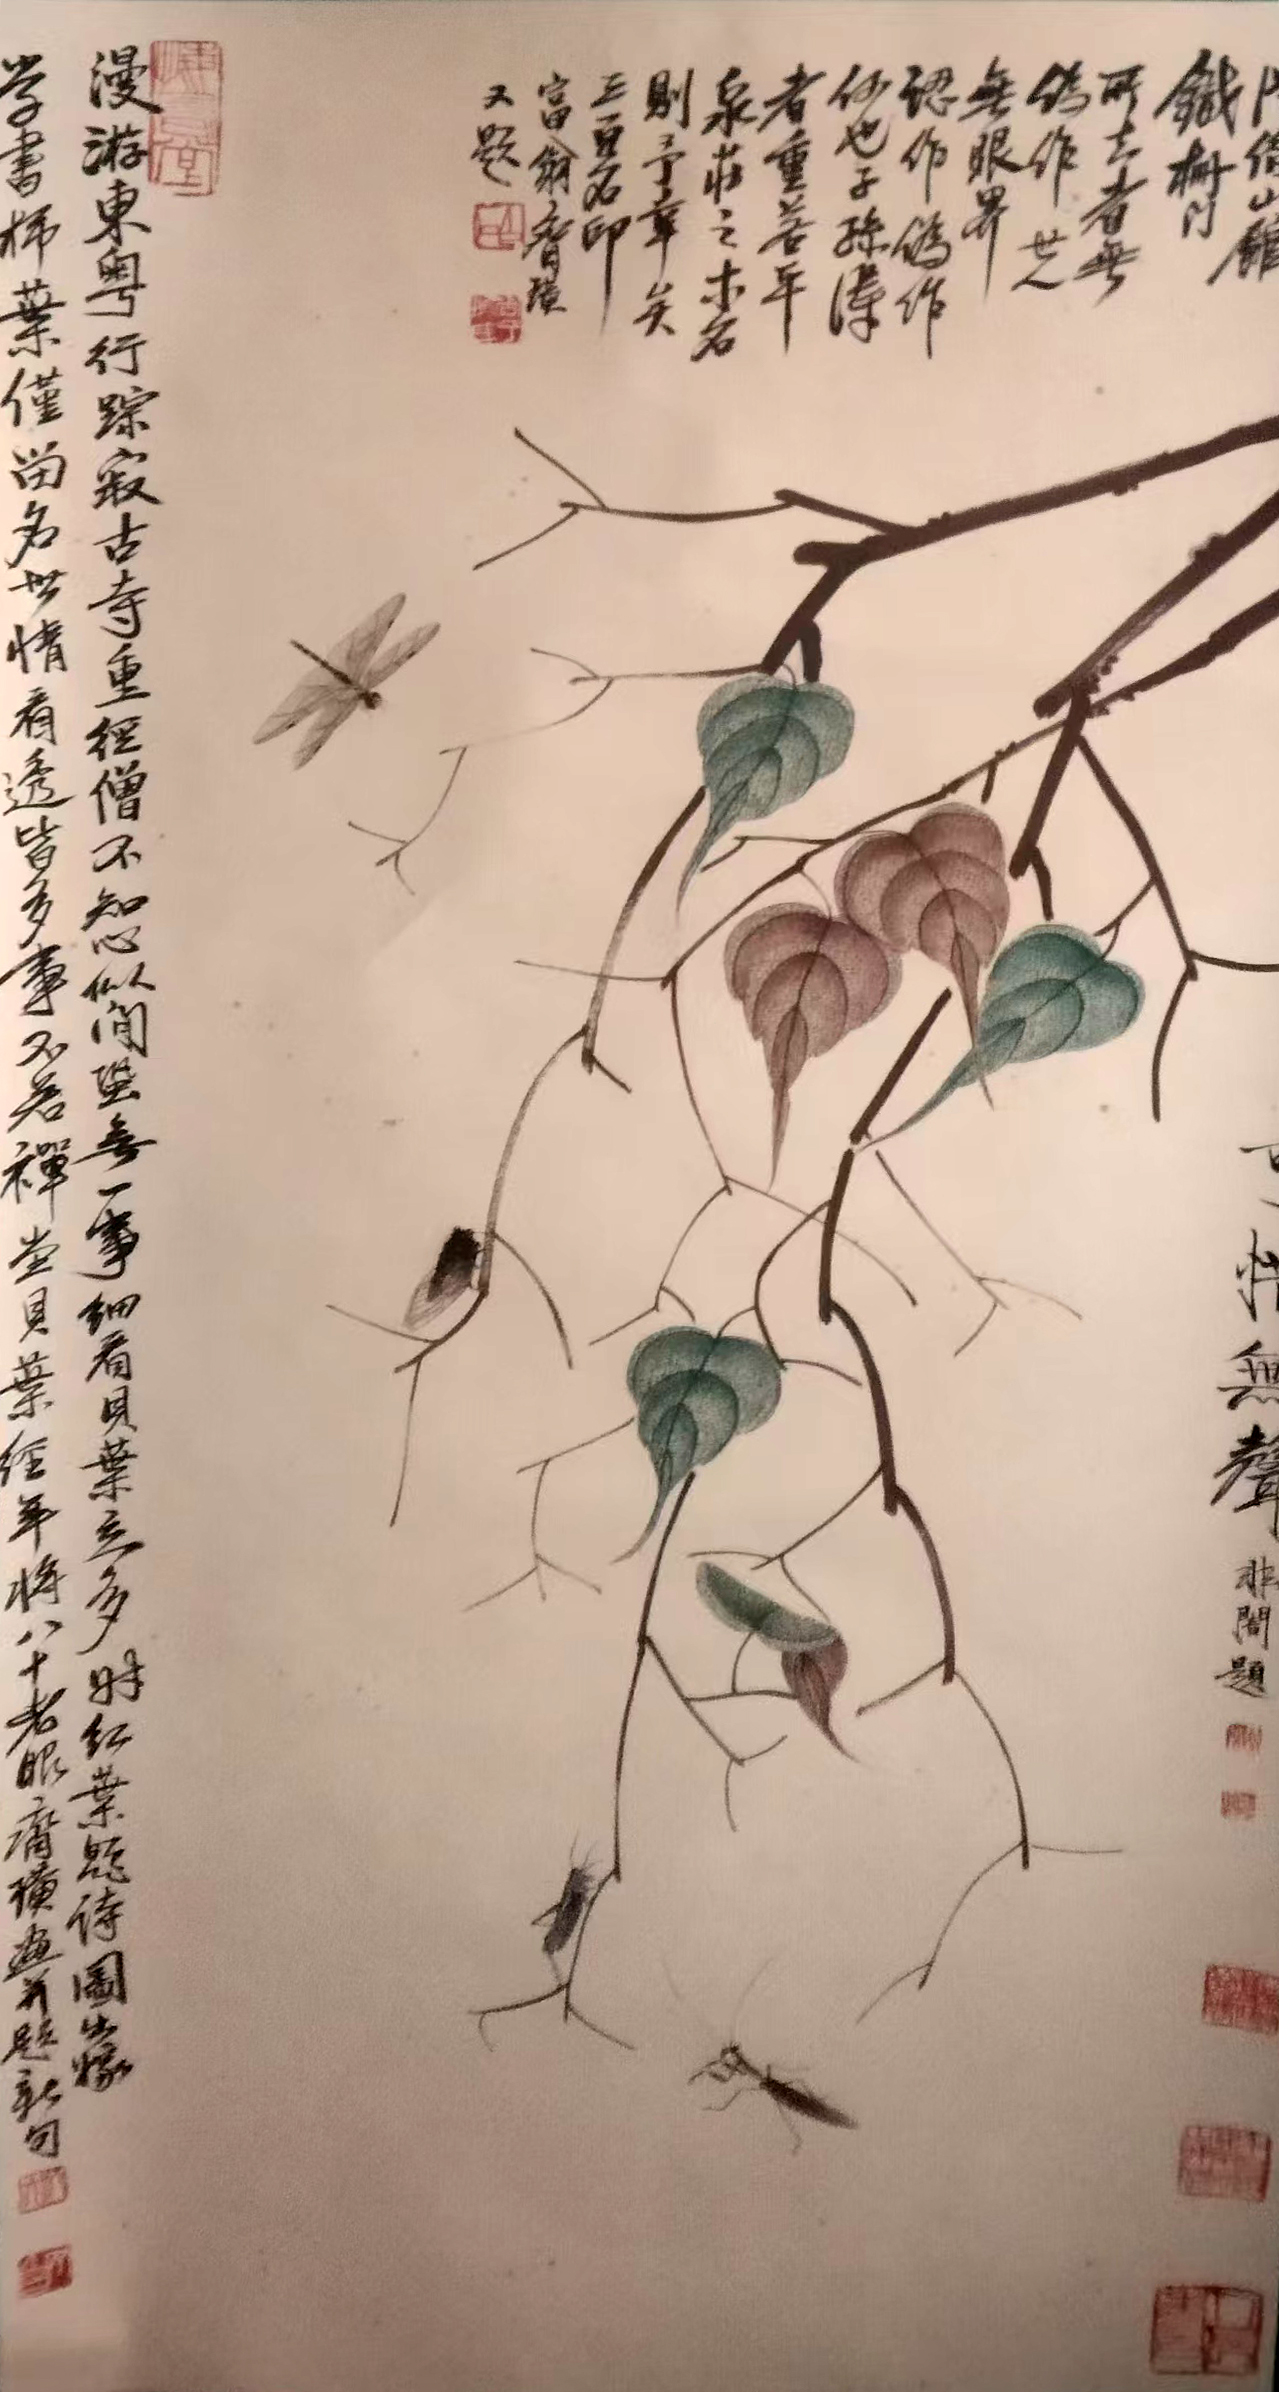 鐵柵門
所去者無
偽作世人
無眼界
認作偽作
何也子孫得
者重若年
泉莊之未名
則予幸矣
三百石印
富翁齊璜
又題
無聲
非闇題
漫游東粵行踪寂古寺重徑僧不知心似閒蛩無一事細看貝葉立多時紅葉題詩圖出嫁
學書柿葉僅留名世情看透皆多事不若禪堂貝葉經年將八十老眼齊璜畫并題新句